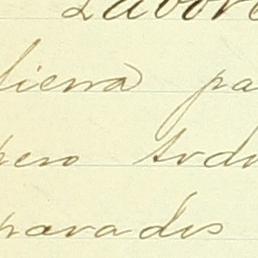 Labore
lierra pa
pero todo
parados